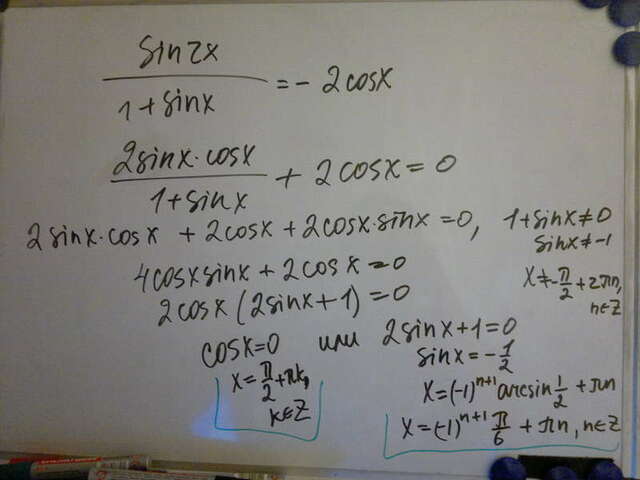 sin2x
1+sinx
= - 2cosx
2sinx·cosx
1+sinx
+ 2cosx = 0
2sinx·cosx + 2cosx + 2cosx·sinx = 0, 1+sinx≠0
sinx≠-1
4cosxsinx + 2cosx = 0
x≠-π/2+2πn,
n∈Z
2cosx(2sinx+1) = 0
cosx=0 или 2sinx+1=0
sinx=-1/2
x=π/2+πk,
k∈Z
x=(-1)ⁿ⁺¹arcsin1/2+πn
x=(-1)ⁿ⁺¹π/6+πn, n∈Z